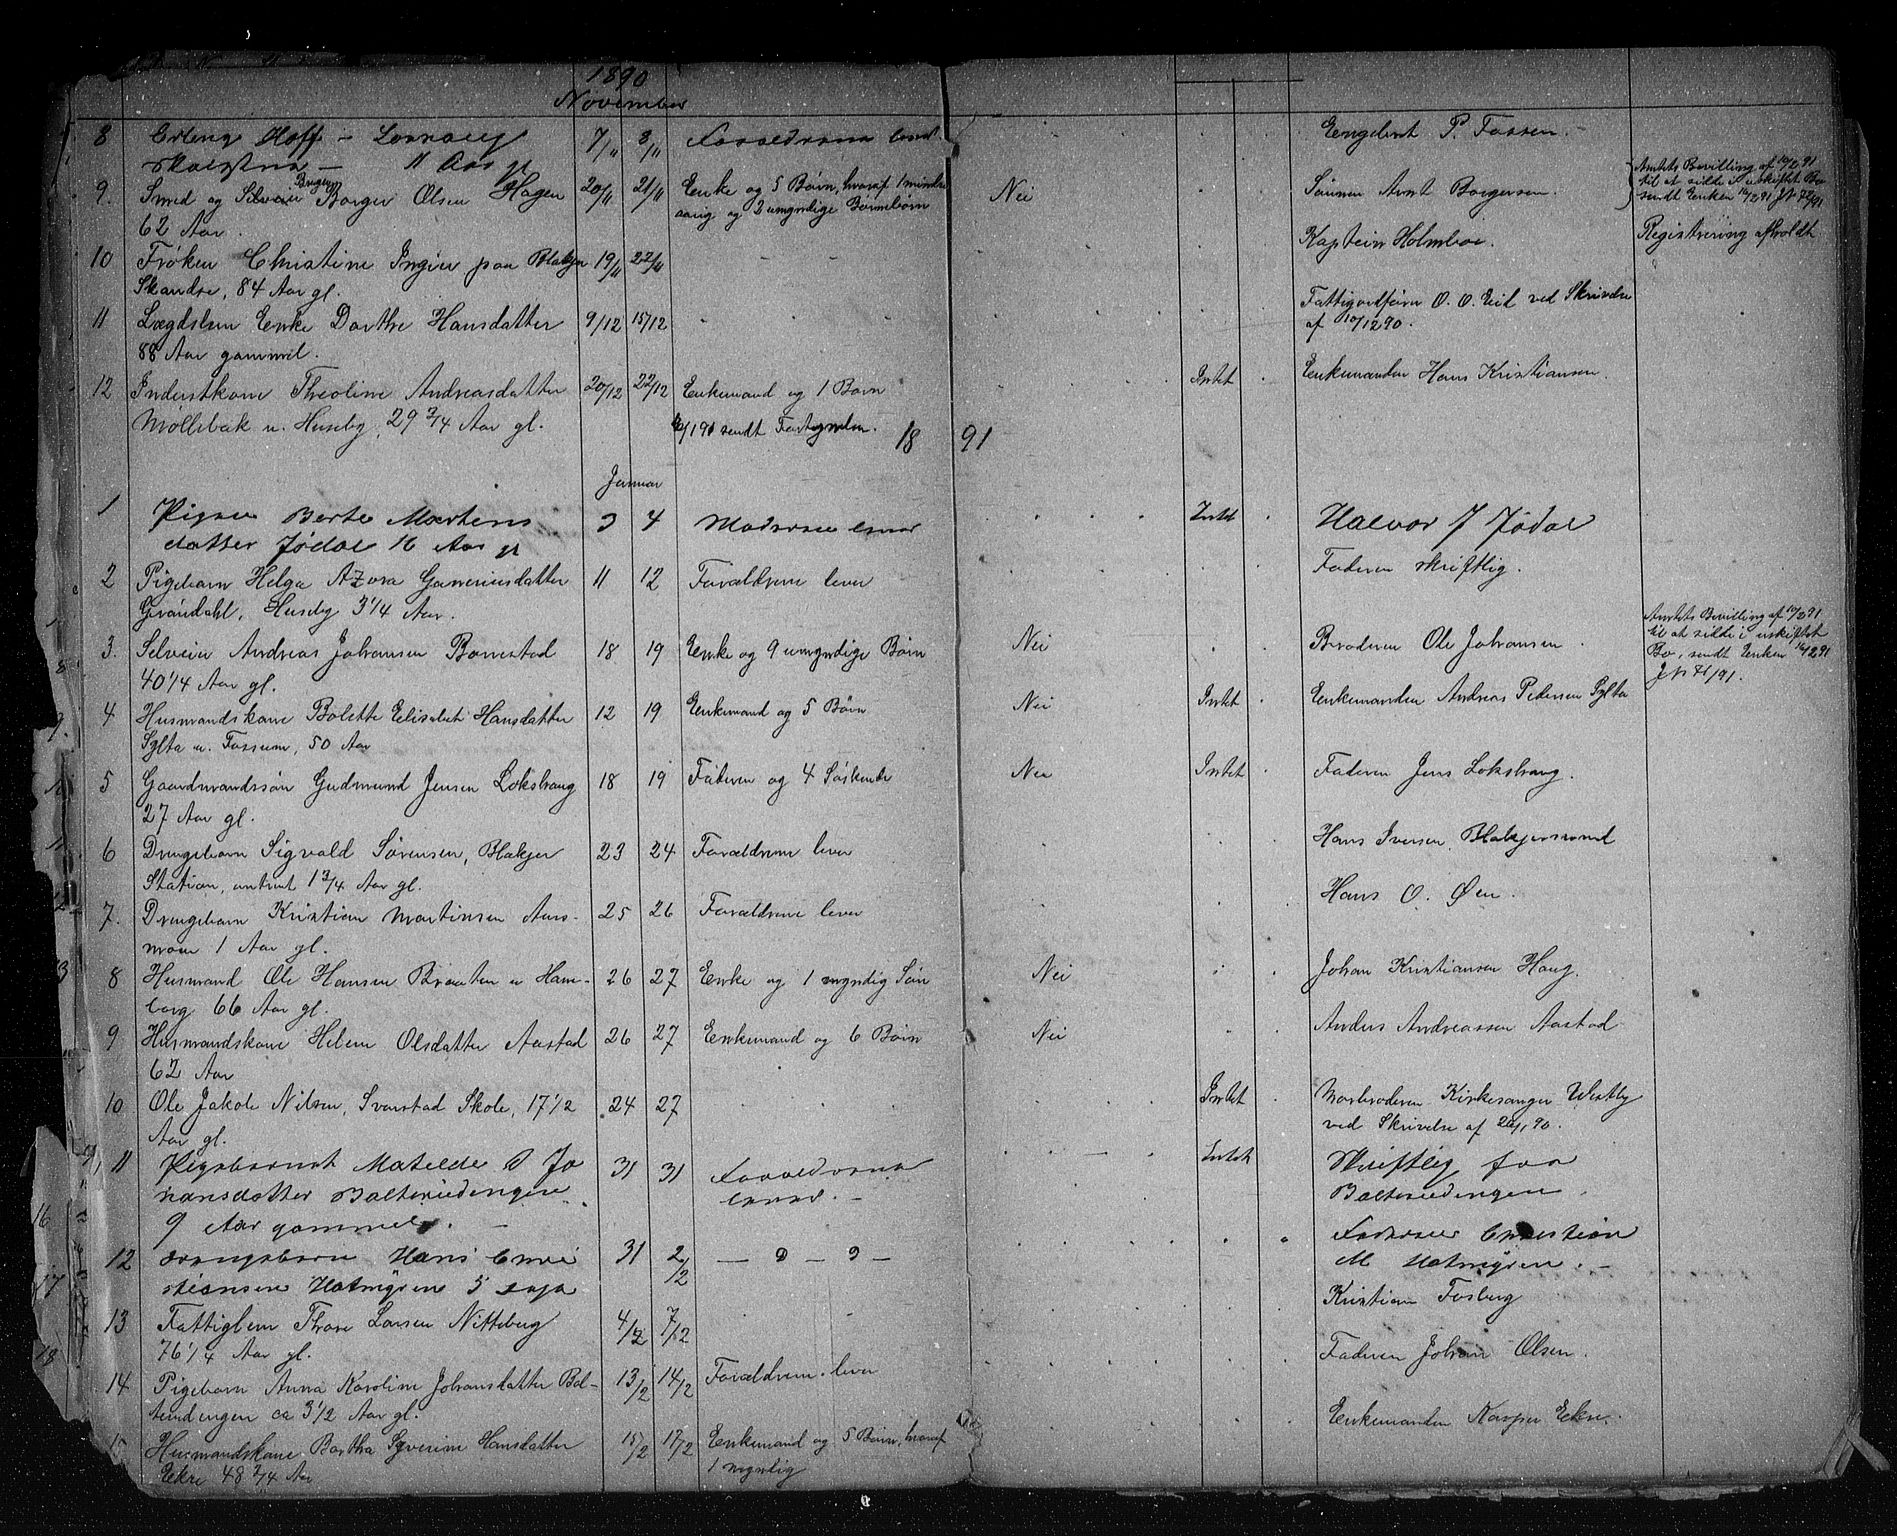 1890
November
8 Erling Hoff - 7/11 8/11 Engebret P. Fossen.
11 Aar gl
9. Smed og Selveier Borger Olsen Hagen 20/11 21/11 Enke og 5 Børn, hvoraf 1 mindre Nei Sønnen Arnt Borgersen. Amtets Bevilling af 10/2 91
62 Aar. aarig og 2 umyndige Børnebørn til at sidde i uskiftet Bo
sendt Enken 16/2 91 J№ 72/91
10 Frøken Christine Ingier paa Blakjer 19/11 22/11 Kaptein Holmboe. Registrering afholdt
Skandse, 84 Aar gl.
11 Lægdslem Enke Dorthe Hansdatter 9/12 15/12 Fattigvedfører O. O. Eid ved Skrivelse
88 Aar gammel. af 10/12 90.
12 Inderstkone Theoline Andreasdatter 20/12 22/12 Enkemand og 1 Barn Intet Enkemanden Hans Kristiansen.
Møllebak u. Huseby, 29 3/4 Aar gl. sendt
1891
Januar
1 Pigen Berte Martens 3 4 Moderen Intet Halvor J Jødal
datter Jødal 16 Aar gl
2 Pigebarn Helga Azora Gunneriusdatter 11 12 Forældrene lever Faderen skriftlig.
Grøndahl, Huseby 3 1/4 Aar.
3. Selveier Andreas Johansen Bonestad 18 19 Enke og 9 umyndige Børn Nei Broderen Ole Johansen. Amtets Bevilling af 10/2 91
40 1/4 Aar gl. til at sidde i uskiftet
Bo, sendt Enken 16/2 91
J№ 71/91.
4 Husmandskone Bolette Elisabet Hansdatter 12 19 Enkemand og 5 Børn Nei Intet Enkemanden Andreas Pedersen Sylta
Sylta u. Fossum, 50 Aar
5 Gaardmandssøn Gudmund Jensen Lokshaug 18 19 Faderen og 4 Søskende Nei Intet Faderen Jens Lokshaug.
27 Aar gl.
6 Drengebarn Sigvald Sørensen, Blakjer 23 24 Forældrene lever Hans Iversen, Blakjersund
Station, omtrent 1 3/4 Aar gl.
7. Drengebarn Kristian Martinsen Aas- 25 26 Forældrene lever Hans O. Øen.
moen 1 Aar gl.
8 Husmand Ole Hansen Braaten u Hane- 26 27 Enke og 1 myndig Søn Nei Johan Kristiansen Haug.
borg 66 Aar gl.
9 Husmandskone Helene Olsdatter Aastad 26 27 Enkemand og 6 Børn Nei Anders Andreassen Aastad
62 Aar
10 Ole Jakob Nilsen, Svarstad Skole, 17 1/2 24 27 Intet Morbroderen Kirkesanger Westby
Aar gl. ved Skrivelse af
11 Pigebarnet Matilde Jo 31 31 Forældrene Intet Skriftlig fra
hansdatter Balterudengen lever. - Balterudengen
9 Aar gammel. -
12 Drengebarn Hans Chri 31 2/2 — " — " — Faderen Christian
stiansen Holmgren 5 Dage M Holmgren. -
13 Fattiglem Thore Larsen Nitteberg 4/2 7/2 Kristian Fosberg
76 1/4 Aar gl.
14 Pigebarn Anna Karoline Johansdatter Bal- 13/2 14/2 Forældrene lever Faderen Johan Olsen.
terudengen ca 3 1/2 Aar gl.
15 Husmandskone Bertha Severine Hansdatter 15/2 17/2 Enkemand og 5 Børn, hvoraf Enkemanden Kasper Ekre.
Ekre 48 3/4 Aar 1 myndig